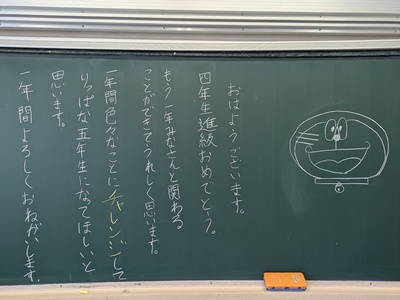 おはようございます。
四年生進級おめでとう。
もう一年みなさんと関わる
ことができてうれしく思います。
一年間色々なことにチャレンジして
りっぱな五年生になってほしいと
思います。
一年間よろしくおねがいします。